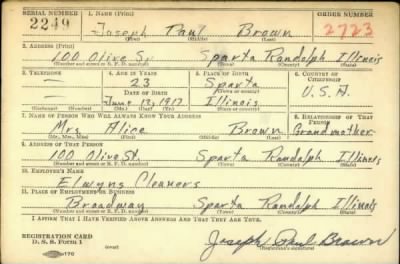 SERIAL NUMBER 1. NAME (Print) ORDER NUMBER
2249 Joseph Paul Brown 2723
(First) (Middle) (Last)
2. ADDRESS (Print)
100 Olive St Sparta Randolph Illinois
(Number and street or R. F. D. number) (Town) (County) (State)
3. TELEPHONE 4. AGE IN YEARS 5. PLACE OF BIRTH 6. COUNTRY OF CITIZENSHIP
23 Sparta
DATE OF BIRTH (Town or county)
June 13, 1917 Illinois U.S.A.
(Exchange) (Number) (Mo.) (Day) (Yr.) (State or country)
7. NAME OF PERSON WHO WILL ALWAYS KNOW YOUR ADDRESS 8. RELATIONSHIP OF THAT PERSON
Mrs Alice Brown Grandmother
(Mr., Mrs., Miss) (First) (Middle) (Last)
9. ADDRESS OF THAT PERSON
100 Olive St. Sparta Randolph Illinois
(Number and street or R. F. D. number) (Town) (County) (State)
10. EMPLOYER'S NAME
Elwyns Cleaners
11. PLACE OF EMPLOYMENT OR BUSINESS
Broadway Sparta Randolph Illinois
(Number and street or R. F. D. number) (Town) (County) (State)
I AFFIRM THAT I HAVE VERIFIED ABOVE ANSWERS AND THAT THEY ARE TRUE.
REGISTRATION CARD
D. S. S. Form 1 (over) Joseph Paul Brown
(Registrant's signature)